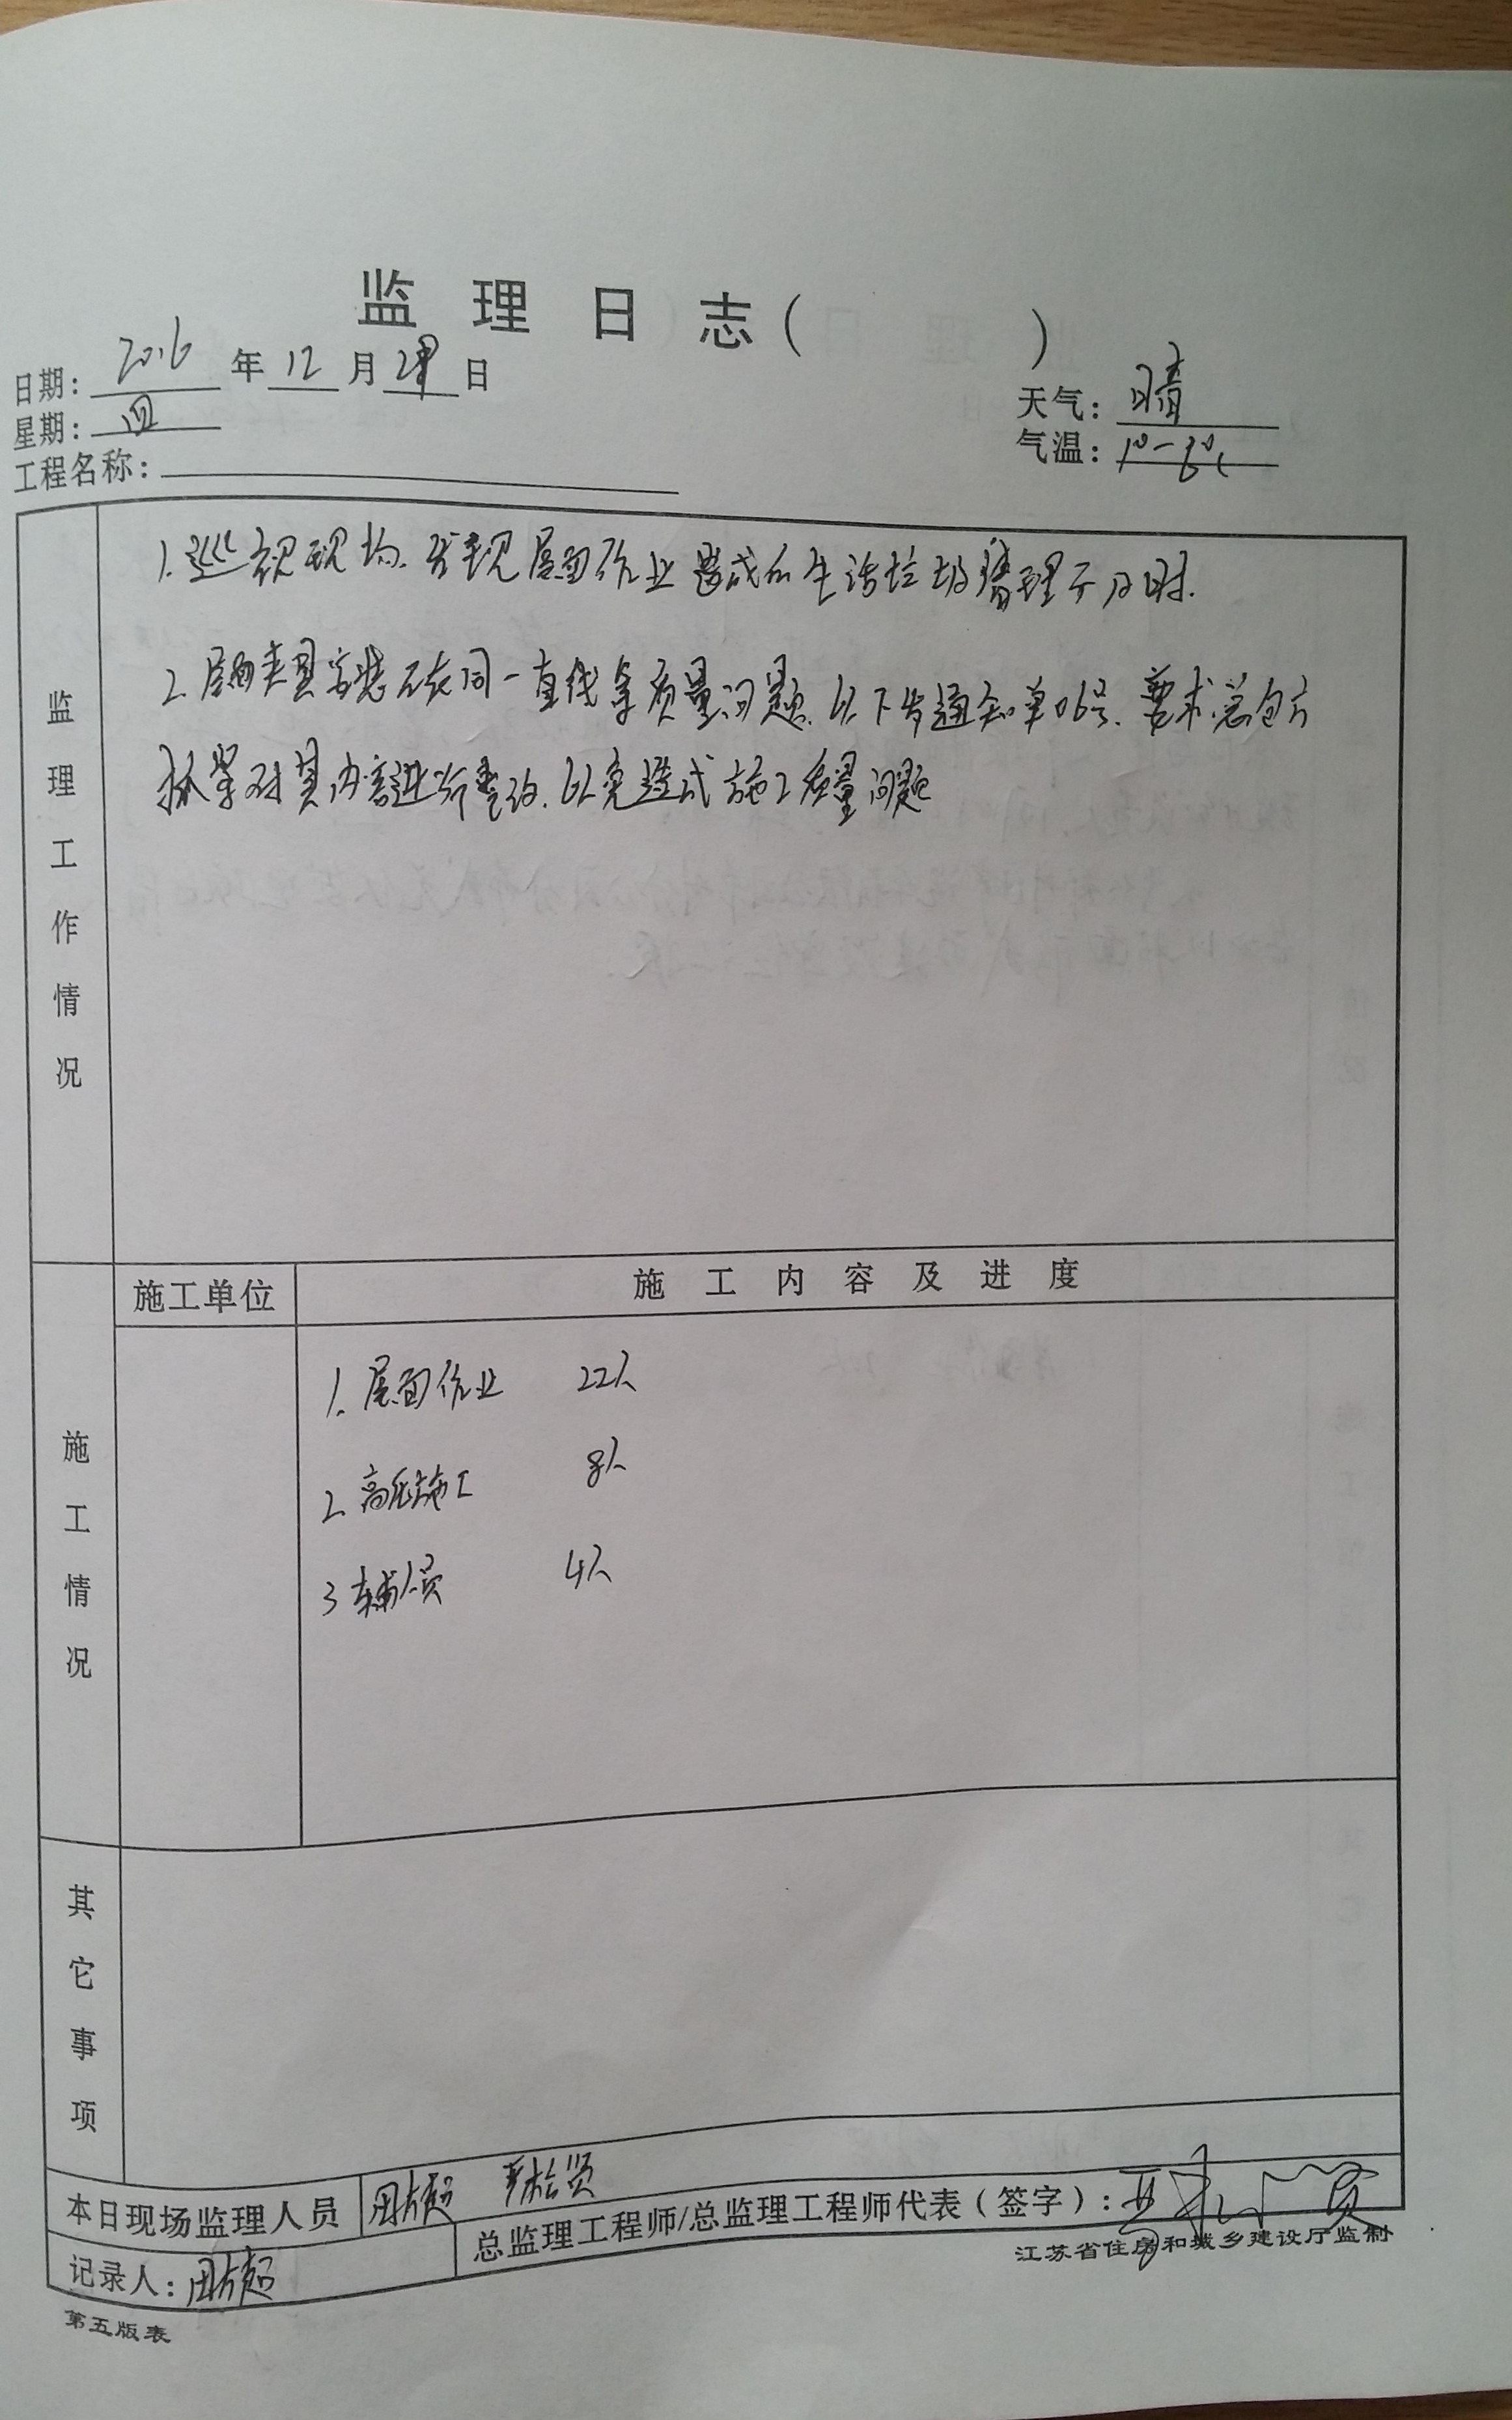 监理日志( )
日期: 2016 年 12 月 日
星期: 四
天气: 晴
气温: 1°-8°C
工程名称:
监理工作情况
1.巡视现场.发现屋面作业造成的生活垃圾清理不及时.
2.屋面夹具安装不在同一直线等质量问题.以下发通知单06号.要求总包方
抓紧对其内容进行整改.以免造成施工质量问题
施工情况
施工单位
施工内容及进度
1.屋面作业 22人
2.高低施工 8人
3 辅人员 4人
其它事项
本日现场监理人员
总监理工程师/总监理工程师代表(签字):
记录人:
江苏省住房和城乡建设厅监制
第五版表